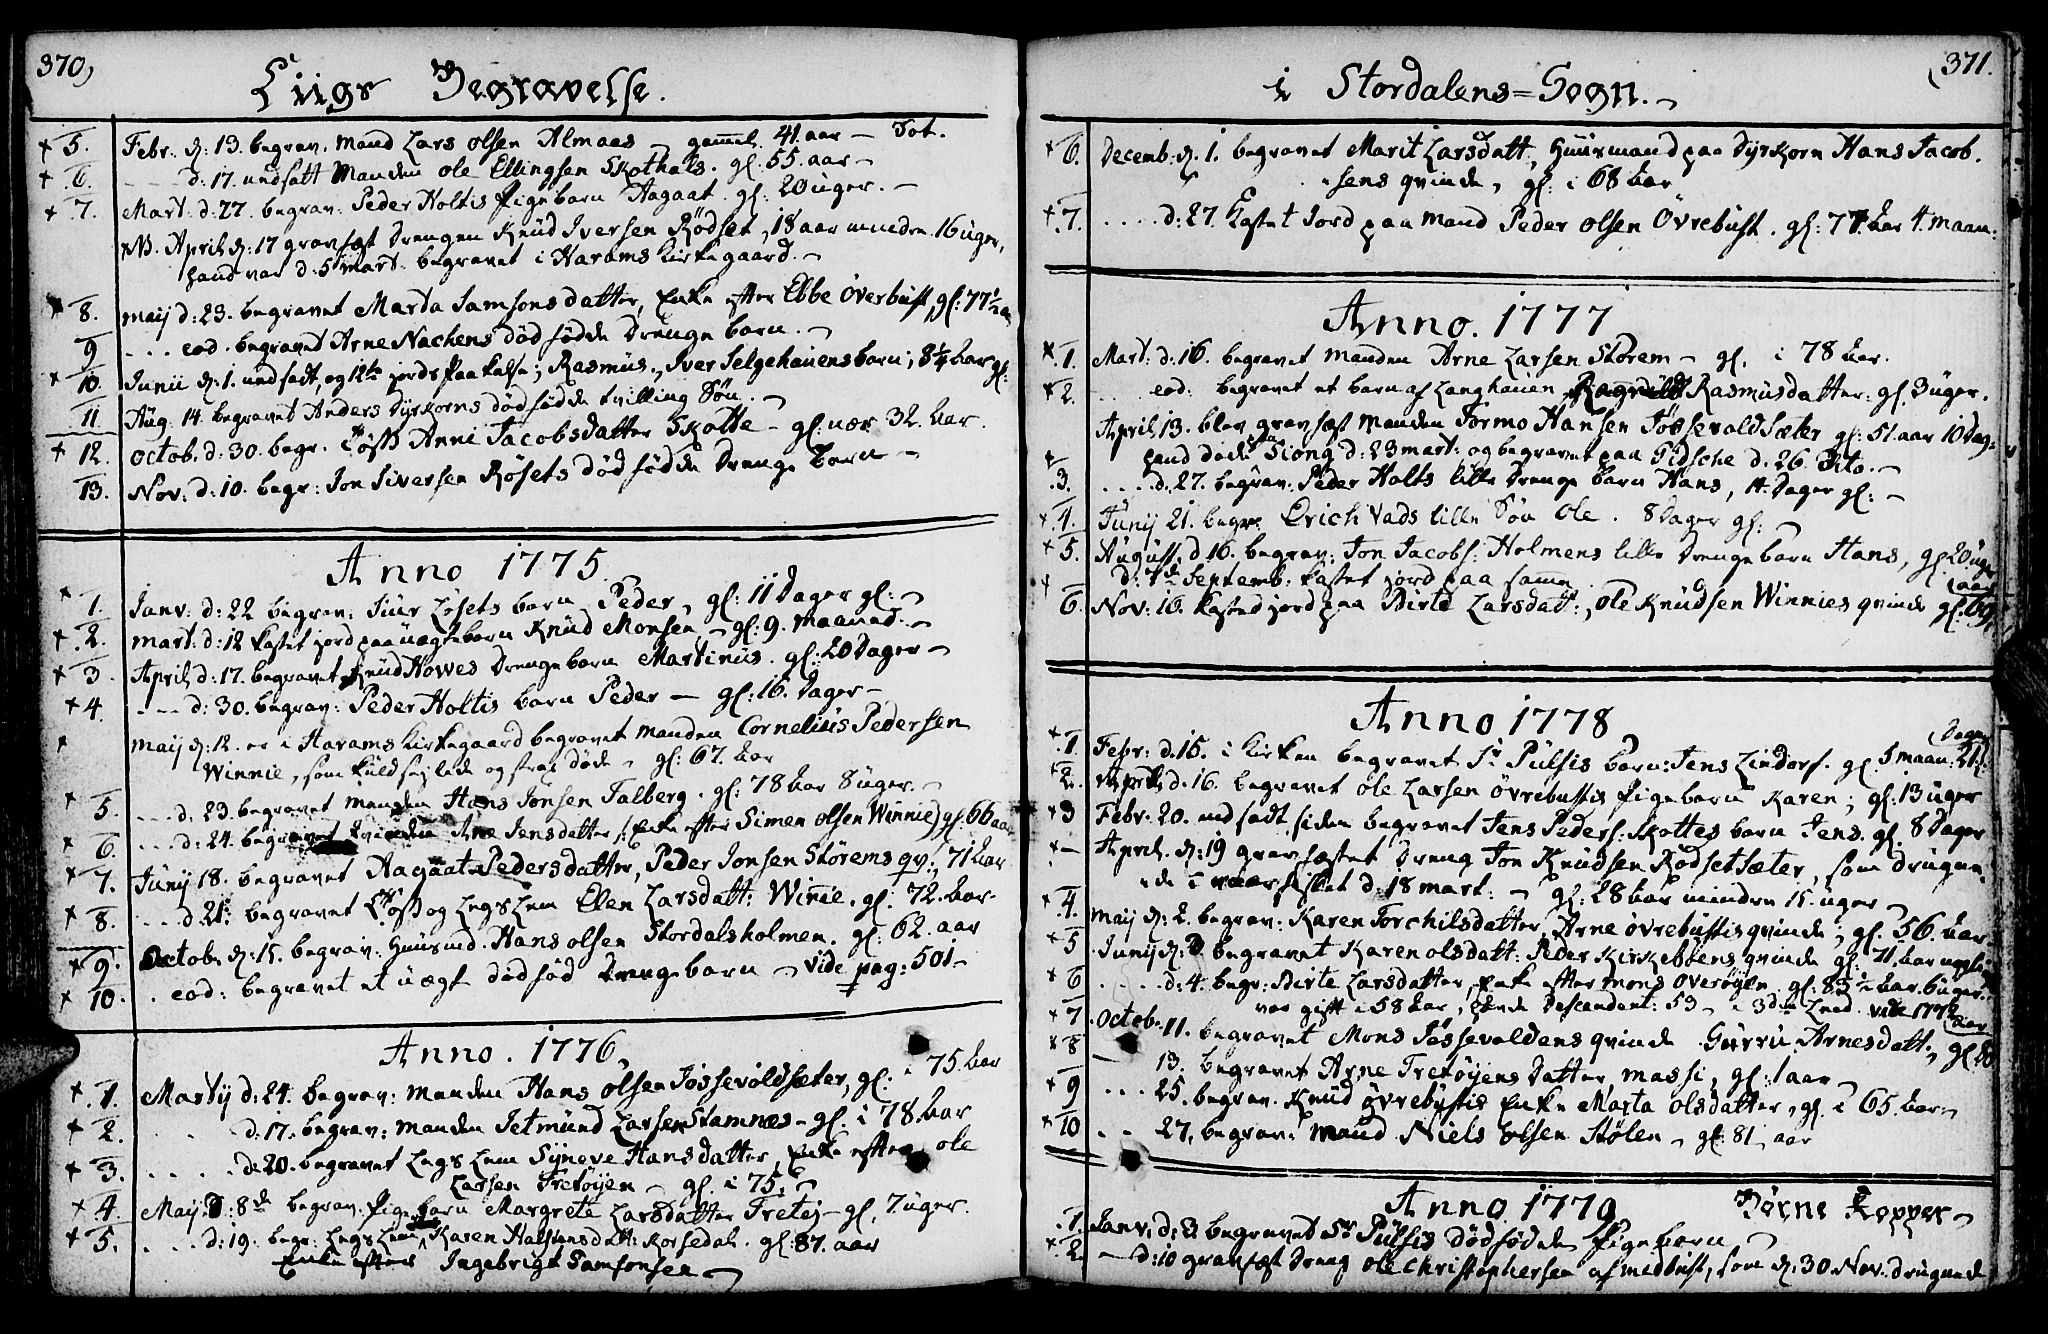 370)
Liigs Begravelse.
5. Febr. d: 13. begrav. mand Lars Olsen Almaas - gamel 41 aar - Tot.
6. d: 17. undsatt Manden Ole Ellingsen Skothals. gl: 55. aar -
7. Mart: d: 27. begrav: Peder Holtis Pigebarn Aagaat. gl: 20 uger. -
NB. April d: 17 gravfæst Drengen Knud Iversen Rödset, 18 aar mindre 16 uger,
hand var d: 5 mart. begravet i Harams Kirkegaard. -
8. maij d: 23. begravet Marta Samsons datter, Enke efter Ebbe Överbust, gl: 77½
9. eod. begravet Arne Nackens död födde Drenge barn. -
10. Junii d: 1. undsadt, og 12te jords paa kastse; Rasmus, Iver Selgehauens barn; 8¼ aar gl:
11. Aug. 14 begravet Anders Dyrkorns död födde tvilling Sön. -
12. octob. d: 30. begr. Anni Jacobsdatter Skotte - gl. nær 32. aar.
13. Nov: d: 10. begr: Jon Siversen Röfets död födde Drenge barn -
Anno 1775.
1. Janv: d: 22 begrav: Siur Löfets barn Peder, gl: 11 Dager gl: -
2. mart: d: 12 kastet jord paa uægte barn Knud Monsen - gl: 9. maaned. -
3. April d: 17. begravet Knud Howes Drengebarn Martinus. gl: 20 Dager -
4. d: 30. begrav: Peder Holtis barn Peder - gl: 16. Dager -
maij d: 12. er i Harams Kirkegaard begravet manden Cornelius Pedersen
Winnie, som kuldsejlede og strax döde - gl: 67. aar
5. d: 23. begravet manden Hans Jonsen Falberg. gl: 78 aar 8 uger. -
6. d: 24. begravet Kvinden Ane Jensdatter /: Enke efter Simen Olsen Winnie) gl: 66 aar
7. Junij 18. begravet Aagaata Pedersdatter, Peder Jonsen Störems qv: 71 aar
8. d: 21: begravet og Legs Lem Elen Larsdatt: Winie. gl: 72. aar -
9. Octob. d: 15. begrav: Huusmd. Hans Olsen Stordalsholmen. gl: 62. aar
10. eod: begravet et uægt dödföd Drengebarn - vide pag: 501 -
Anno. 1776.
1. Martij d: 24. begrav: manden Hans Olsen Jössevoldsæter, gl: i 75. aar
2. d: 17. begrav: manden Jetmund Larsen Stamnes - gl. i 78 aar
3. d: 20. begravet Legs Lem Synove Hansdatter, Enke efter Ole
Larsen Fretöyen - gl. i 75. -
4. Maij d: 8de begrav: Pige barn Margrete Larsdatter Fretöj - gl, 7 uger.
5. d: 19. begr: Legs Lem Karen Halstensdatt: Korsedal. gl: 87. aar
Enke efter Ingebrigt Samsonsen -
371.
i Stordalens=Sogn. -
6. Decemb: d. 1. begravet Marit Larsdatt, Huusmand paa Dyrkorn Hans Jacob.
sens qvinde, gl: i 68 aar
7. d: 27. Kastet Jord paa mand Peder Olsen Övrebust. gl: 77 aar 4. maan:
Anno. 1777
1. Mart. d: 16. begravet manden Arne Larsen Störem - gl. i 78 aar.
2. eod: begravet et barn af Langhauen Rasmusdatter: gl. 3 uger.
April 13. blev gravfæst Manden Tormo Hansen Jössevoldsæter gl: 51. aar 10 Dag:
hand döde Siong d: 23 mart: og begravet paa Tidsche d. 26. dito. -
3. d. 27. begrav. Peder Holts lille Drenge barn Hans, 14. Dager gl: -
4. Junij 21. begr. Erich Vads lille Sön Ole. 8 Dager gl: -
5. August. d 16. begrav: Jon Jacobs: Holmens lille Drengebarn Hans, gl 20 uger
d: 7de Septemb: Kastet jord paa samme
6. Nov: 16. Kasted jord paa Birte Larsdatt:, Ole Knudsen Winnies qvinde gl: 69, (aar
Anno 1778
1. Febr: d. 15. i Kirken begravet Sr Pulsis barn: Jens Lindorf. gl. 5 maan: 21. (Dager
2. April d. 16. begravet Ole Larsen Övrebustis Pigebarn Karen; gl. 13 uger
3 Febr. 20. nedsadt, siden begravet Jens Peders: Skottes barn Jens. gl. 8 Dager
- April d: 19 gravfæstet Dreng Jon Knudsen Rödset Sæter, som drugne.
de i vaarfisket d. 18 mart: - gl: 28 aar mindre 15. uger -
4. maij d: 2. begrav: Karen Torchilsdatter, Arne Övrebustis qvinde; gl. 56. aar
5 Junij d: begravet Karen Olsdatt: Peder Kirkeböens qvinde gl: 71, aar
6 d: 4. begr: Birte Larsdatter, Enke efter Mons Overöyen gl. 83½ aar. 6 uger.
7 var gift i 58 aar, hende Descendent: 53 - i 3de Leed. vide 1772
8 Octob. 11. begravet Mons Jössevoldens qvinde Gurru. Arnesdatt. gl. (aar
13. begravet Arne Fretöyens Datter, Massi, gl: 1 aar -
9 25. begrav. Knud Övrebustis Enke Marta Olsdatter, gl. i 65. aar. -
10 27. begrav: Mand Niels Olsen Stölen - gl: 81, aar
Anno 1779 Börne Kopper -
1. Janv. d: 3. begravet Sr Pulsis dödfödde Pigebarn -
2. - d: 10 gravfæst Dreng Ole Christophersen af Medbust, som d. 30 Nov. drugnede